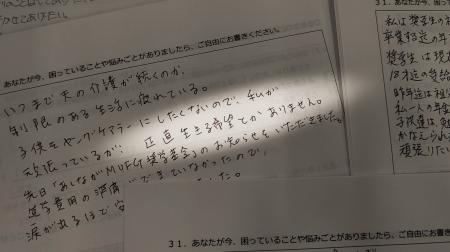 かせてあげたい。
あなたが今、困っていることや悩みごとがありましたら、ご自由にお書きください。
いつまで夫の介護が続くのか、
制限のある生活に疲れている。
子供をヤングケアラーにしたくないので、私が
頑張っているが、正直生きる希望とかありません。
先日「あしながMUFG奨学基金」のお知らせをいただきました。
進学費用の準備ができていなかったので、
涙が出るほど
した。
31．あなたが今、困
私は奨学生の
卒業予定の年
奨学生は現
18才迄の受給
昨年迄は祖
私一人の年金
子供達は、勉
かなえられ
頑張りた
31．あなたが今、困っていることや悩みごとがありましたら、ご自由にお書きください。